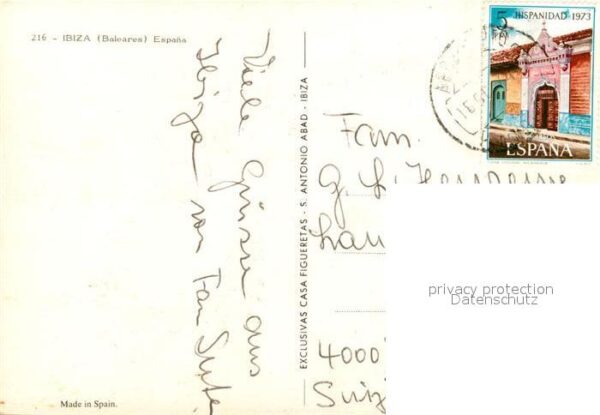 216 - IBIZA (Baleares) España
Viele Grüsse aus
Ibiza von Fam
Made in Spain.
EXCLUSIVAS CASA FIGUERETAS - S. ANTONIO ABAD - IBIZA
5 HISPANIDAD-1973
ESPAÑA
Fam.
4000
privacy protection
Datenschutz